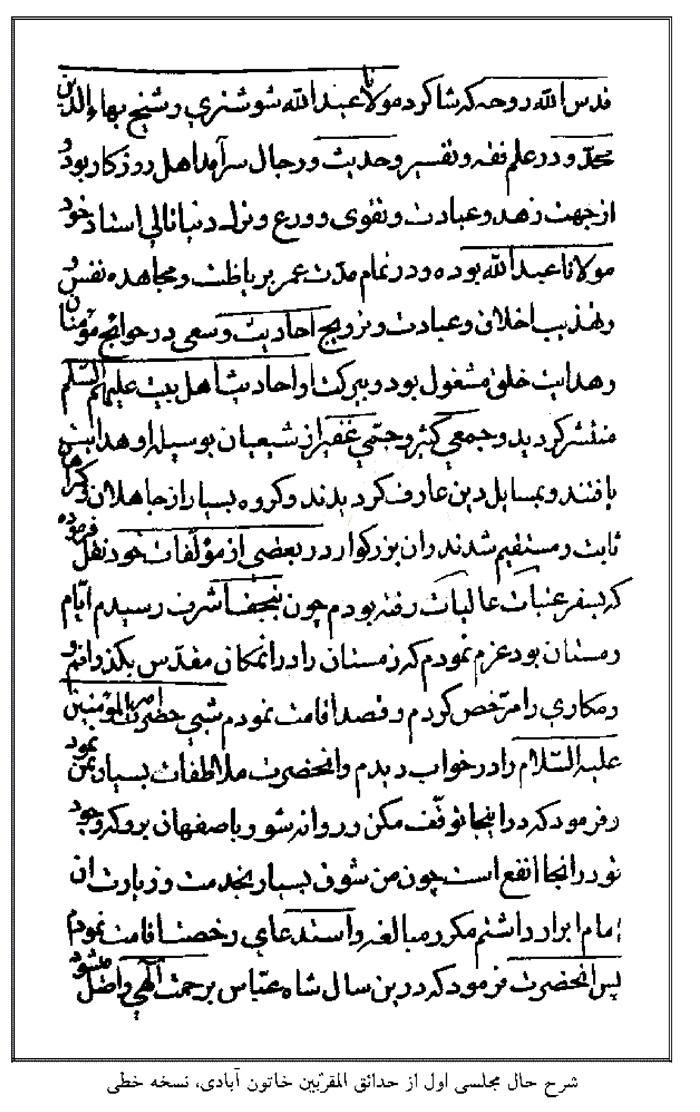 قدس الله روحه که شاکرد مولانا عبدالله شوشتری و شیخ بهاءالدین
محمد بود و در علم فقه و تفسیر و حدیث و رجال سرآمد اهل روزکار بود و
از جهت زهد و عبادت و تقوی و ورع و ترک دنیا تالی استاد خود
مولانا عبدالله بوده و در تمام مدت عمر بریاضت و مجاهده نفس و
و تهذیب اخلاق و عبادت و ترویج احادیث و سعی در حوائج مؤمنان
و هدایت خلق مشغول بود و ببرکت او احادیث اهل بیت علیهم السلام
منتشر کردید و جمعی کثیر و جمّی غفیر از شیعیان بوسیله او هدایت
یافتند و بمسایل دین عارف کردیدند و کروه بسیار از جاهلان و کمراهان
ثابت و مستقیم شدند و ان بزرکوار در بعضی از مؤلفات خود نقل فرموده
که بسفر عتبات عالیات رفته بودم چون بنجف اشرف رسیدم ایام
زمستان بود عزم نمودم که زمستان را در انمکان مقدّس بکذرانم و
و مکاری را مرخّص کردم و قصد اقامت نمودم شبی حضرت امیرالمؤمنین
علیه السّلام را در خواب دیدم و انحضرت ملاطفات بسیار بمن نمود
و فرمود که در اینجا توقّف مکن و روانه شو و باصفهان برو که وجود
تو در انجا انفع است چون من شوق بسیار بخدمت و زیارت ان
امام ابرار داشتم مکرر مبالغه و استدعای رخصت اقامت نمودم
پس انحضرت فرمود که درین سال شاه عبّاس برحمت الهی واصل میشود
شرح حال مجلسی اول از حدائق المقرّبین خاتون آبادی، نسخه خطی